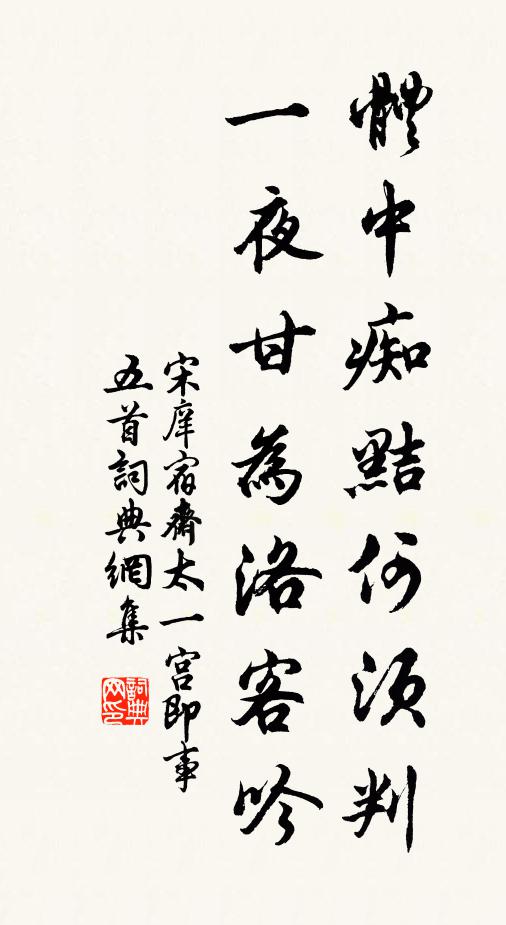 體中痴黠何須判
一夜甘為洛客吟
宋庠宿齋太一宮即事
五首詞典網集
詞典
网印